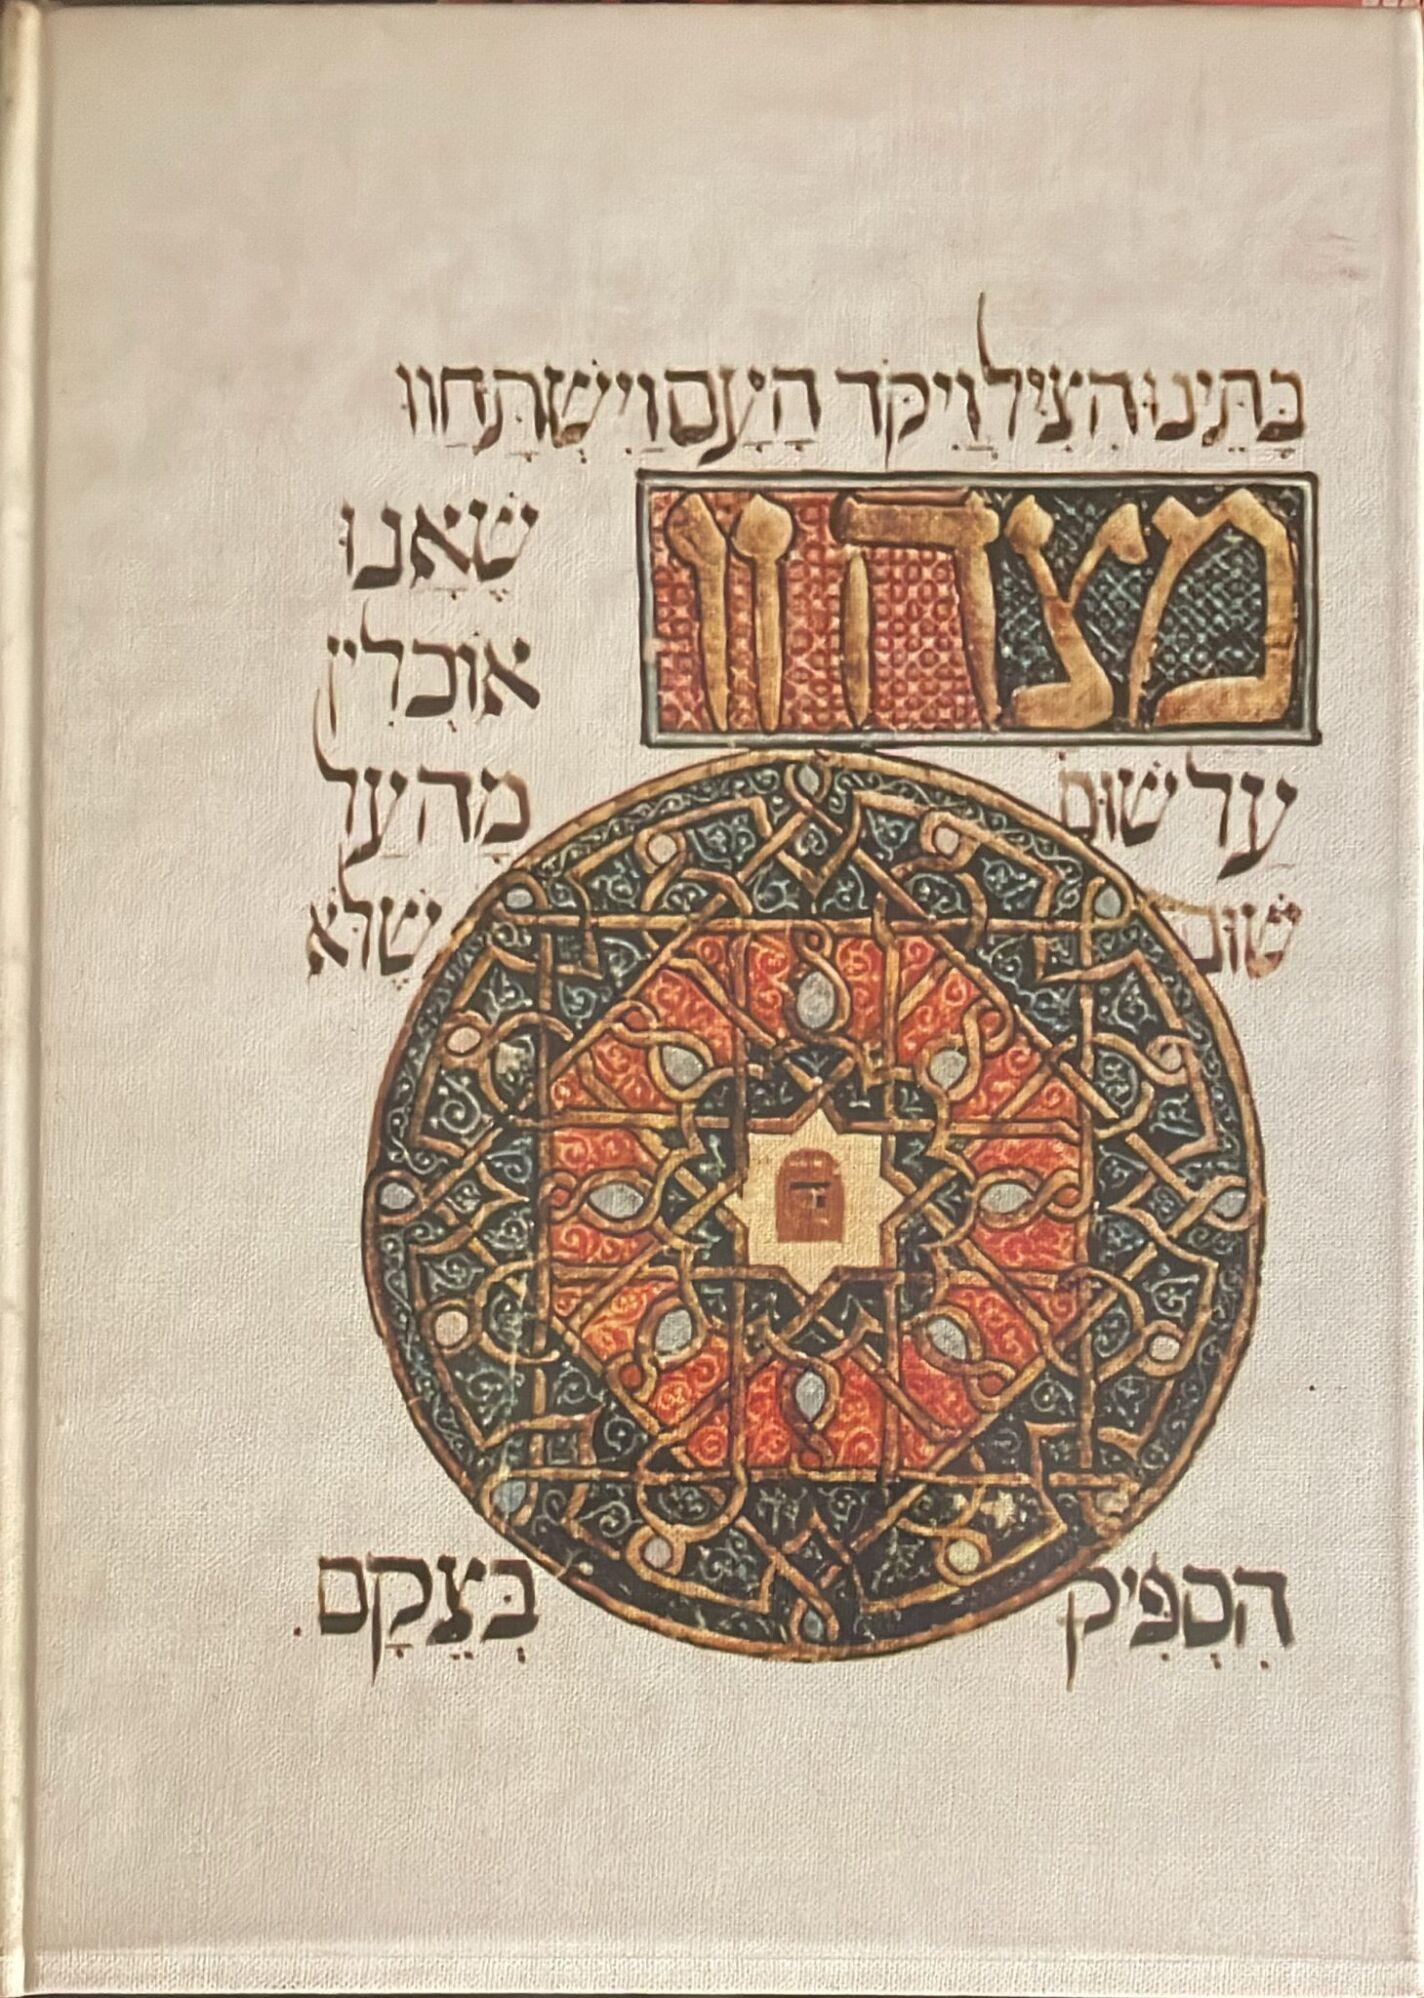 בָּתֵּינוּ הִצִּיל וַיִּקֹּד הָעָם וַיִּשְׁתַּחֲווּ
מצה זו שֶׁאָנוּ
אוֹכְלִין
עַל שׁוּם מָה עַל
שׁוּם שֶׁלּוֹא
הִסְפִּיק בְּצֵקָם.